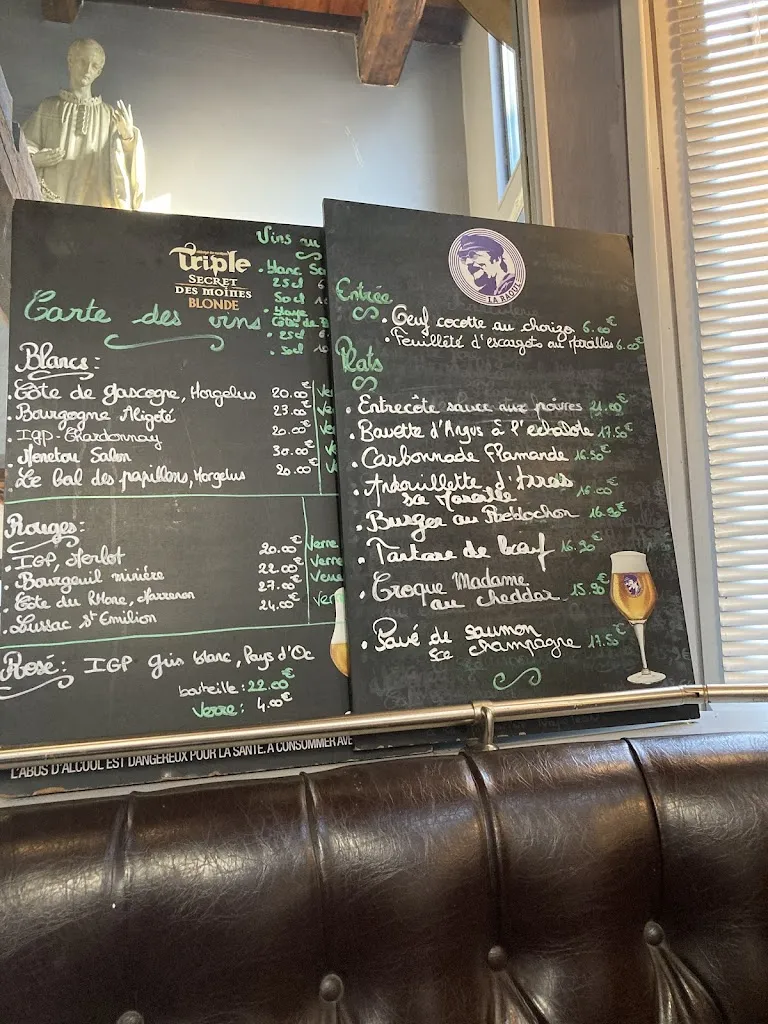 Triple
SECRET
DES MOINES
BLONDE
Carte des vins
Vins au
. blanc
25cl 6
50cl
. Côtes de
. 25cl 6
. 50cl 10
Blancs:
. Côte de gascogne, Horgelus 20.00€
. Bourgogne Aligoté 23.00€
. IGP. Chardonnay 20.00€
. Menetou Salon 30.00€
. Le bal des papillons, Horgelus 20.00€
Rouges:
. IGP, Merlot 20.00€ Verre
. Bourgeuil minière 22.00€ Verre
. Côte du Rhone, 27.00€ Verre
. Lussac St Emilion 24.00€ Ver
Rosé: IGP gris blanc, Pays d'Oc
bouteille: 22.00€
Verre: 4.00€
L'ABUS D'ALCOOL EST DANGEREUX POUR LA SANTÉ. A CONSOMMER AVE
LA RAOUL
Entrée
. Oeuf cocotte au chorizo 6.00€
. Feuilleté d'escargots au Maroilles 6.00€
Plats
. Entrecôte sauce aux poivres 21.00€
. Bavette d'Angus à l'échalote 17.50€
. Carbonnade Flamande 16.50€
. Andouillette d'Arras
sce Maroille 16.00€
. Burger au Reblochon 16.90€
. Tartare de bœuf 16.90€
. Croque Madame
au cheddar 15.90€
. Pavé de saumon
sce champagne 17.50€